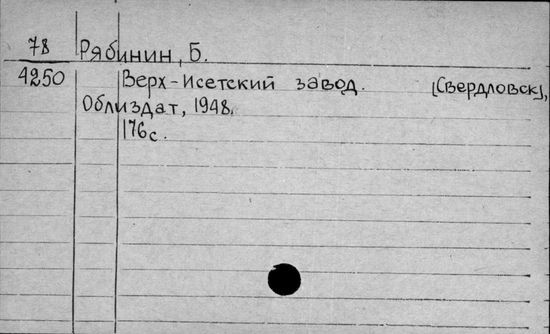 78 Рябинин, Б.
4250 Верх-Исетский завод. [Свердловск],
Облиздат, 1948.
176с.